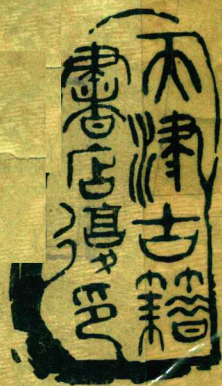 天津古籍
書店復印